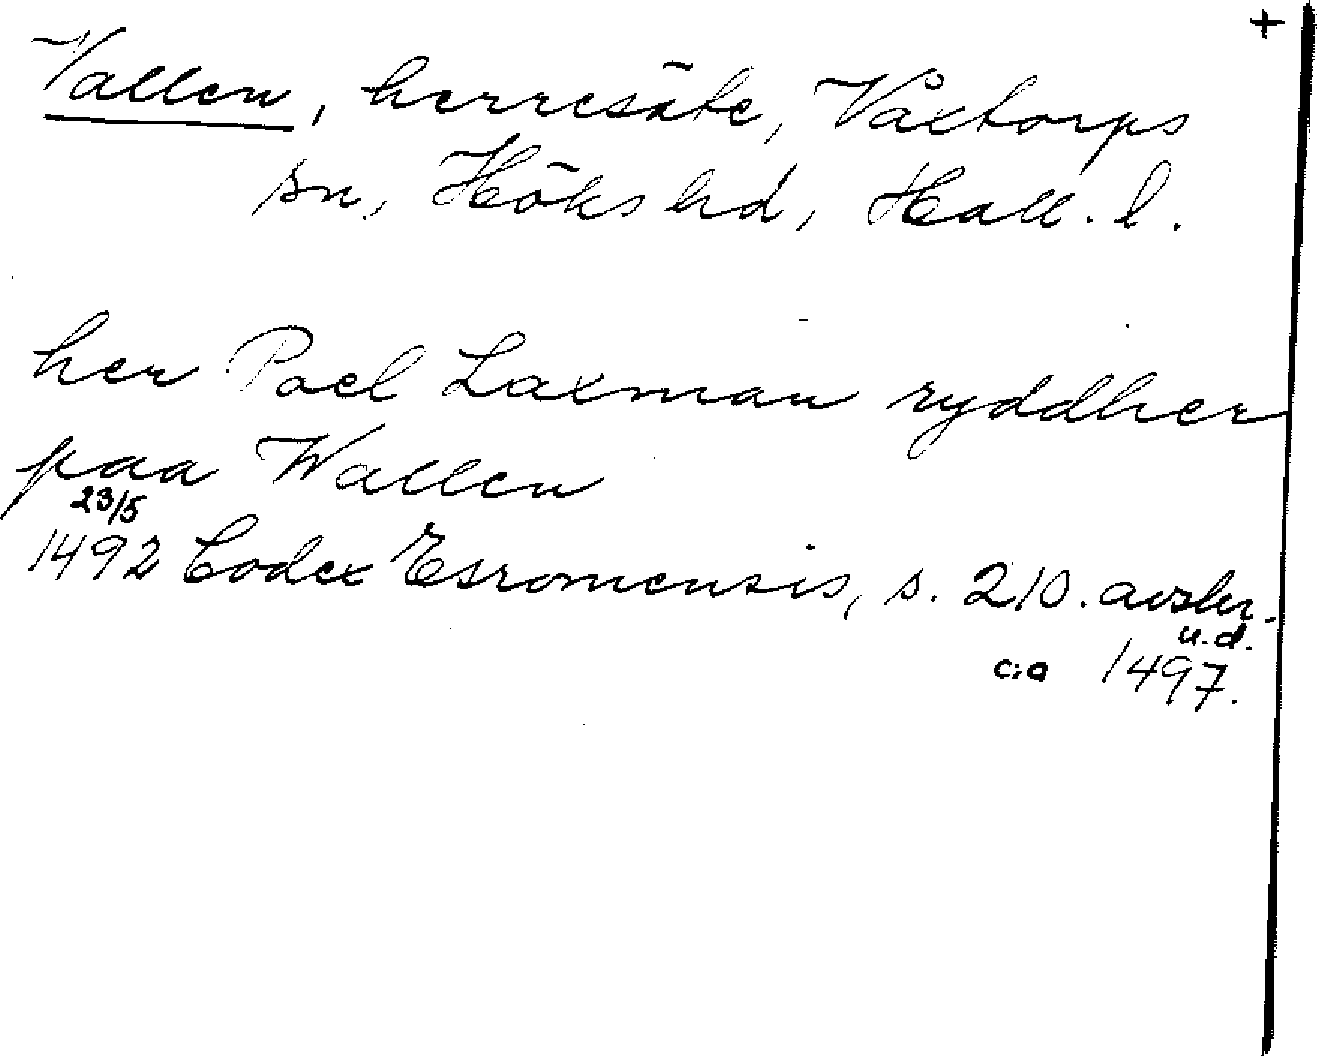 +
Vallen, herresäte, Våxtorps
sn, Höks hd, Hall. l.
her Poel Laxman ryddher
paa Wallen
23/5
1492 Codex Esromensis, s. 210. avskr.
u.d.
c:a 1497.